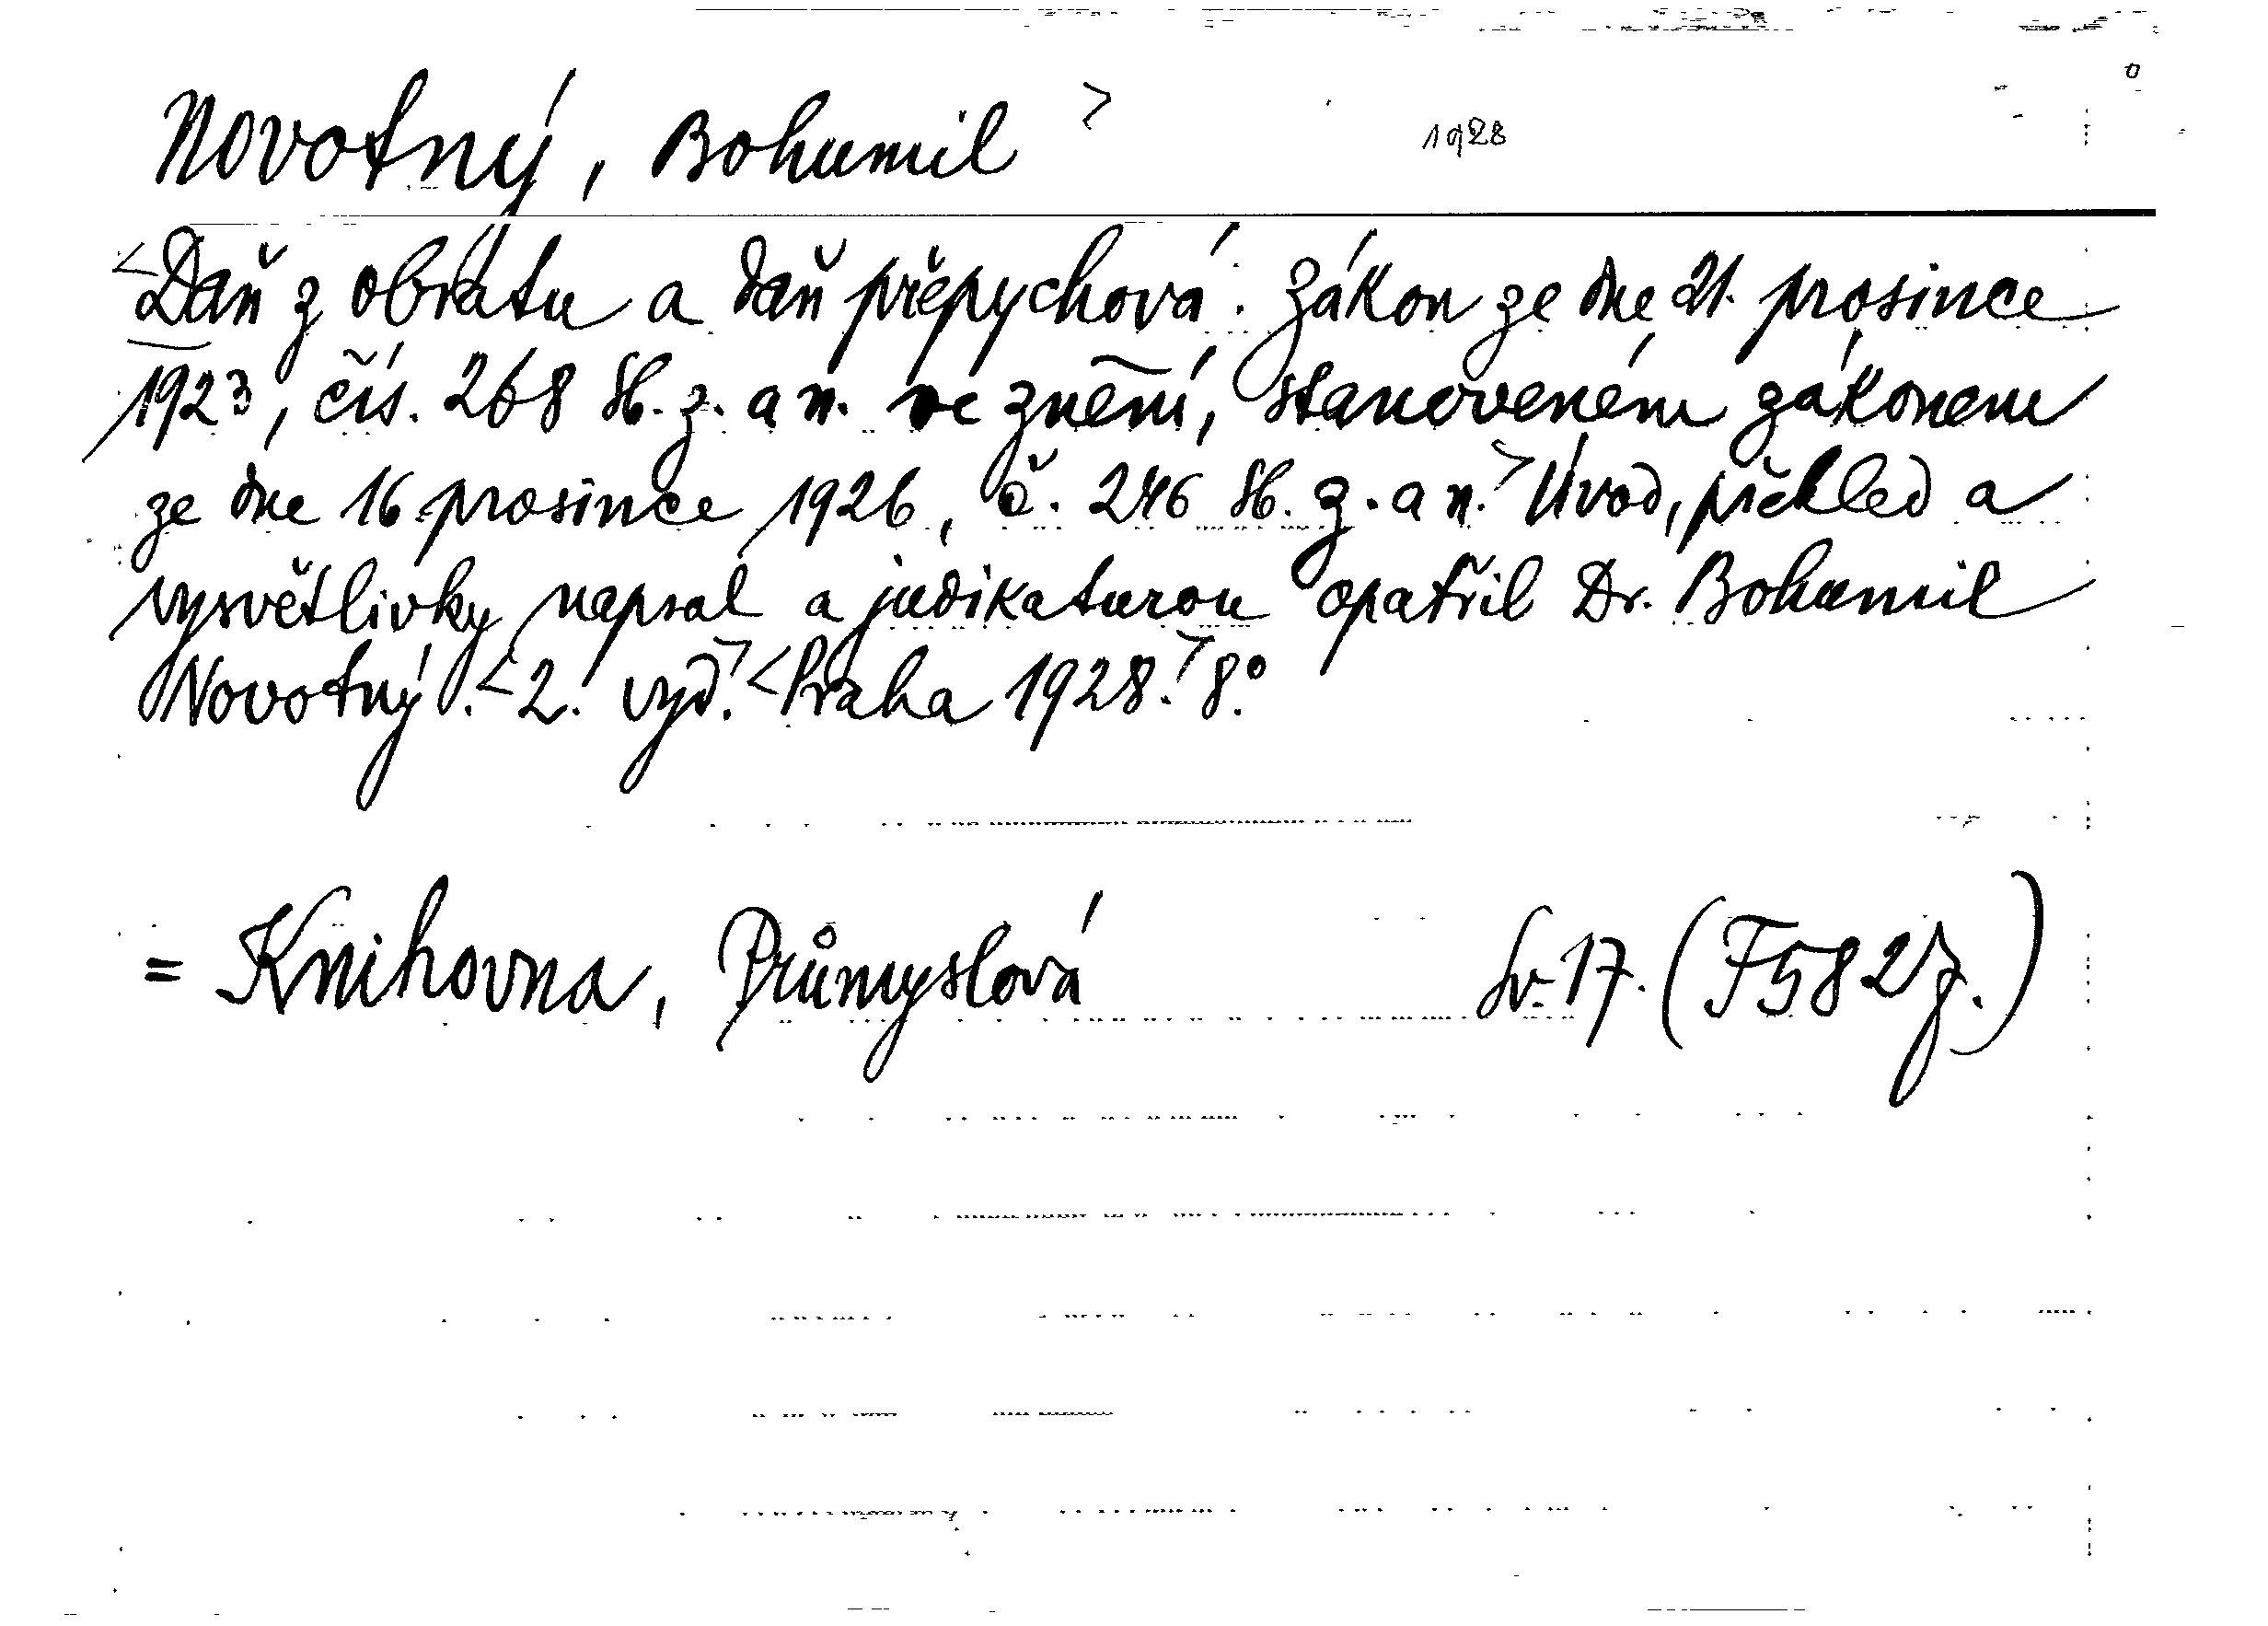 Novotný, Bohumil > 1928
<Daň z obratu a daň přepychová. Zákon ze dne 21. prosince
1923, čís. 268 Sb. z. a n. ve znění, stanoveném zákonem
ze dne 16. prosince 1926, č. 246 Sb. z. a n.> Úvod, přehled a
vysvětlivky napsal a judikaturou opatřil Dr. Bohumil
Novotný. <2. vyd.> <Praha 1928.> 8°.
= Knihovna, Průmyslová Sv. 17. (F 582 j.)